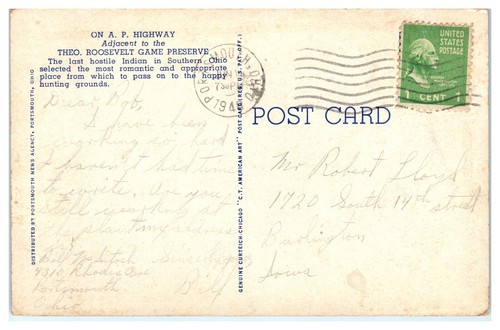 ON A. P. HIGHWAY
Adjacent to the
THEO. ROOSEVELT GAME PRESERVE
The last hostile Indian in Southern Ohio
selected the most romantic and appropriate
place from which to pass on to the happy
hunting grounds.
Dear Bob,
I have been
working so hard
I haven't had time
to write. Are you
still working at
the plant my address
Bill McIntosh Sincerely
4310 Rhodes Ave
Portsmouth Bill
Ohio
DISTRIBUTED BY PORTSMOUTH NEWS AGENCY, PORTSMOUTH, OHIO
GENUINE CURTEICH-CHICAGO "C.T. AMERICAN ART" POST CARD (REG. U.S. PAT. OFF.)
PORTSMOUTH, OHIO
730PM
194
UNITED STATES
POSTAGE
1 CENT 1
POST CARD
Mr Robert Lloyd
1720 South 14th street
Burlington
Iowa